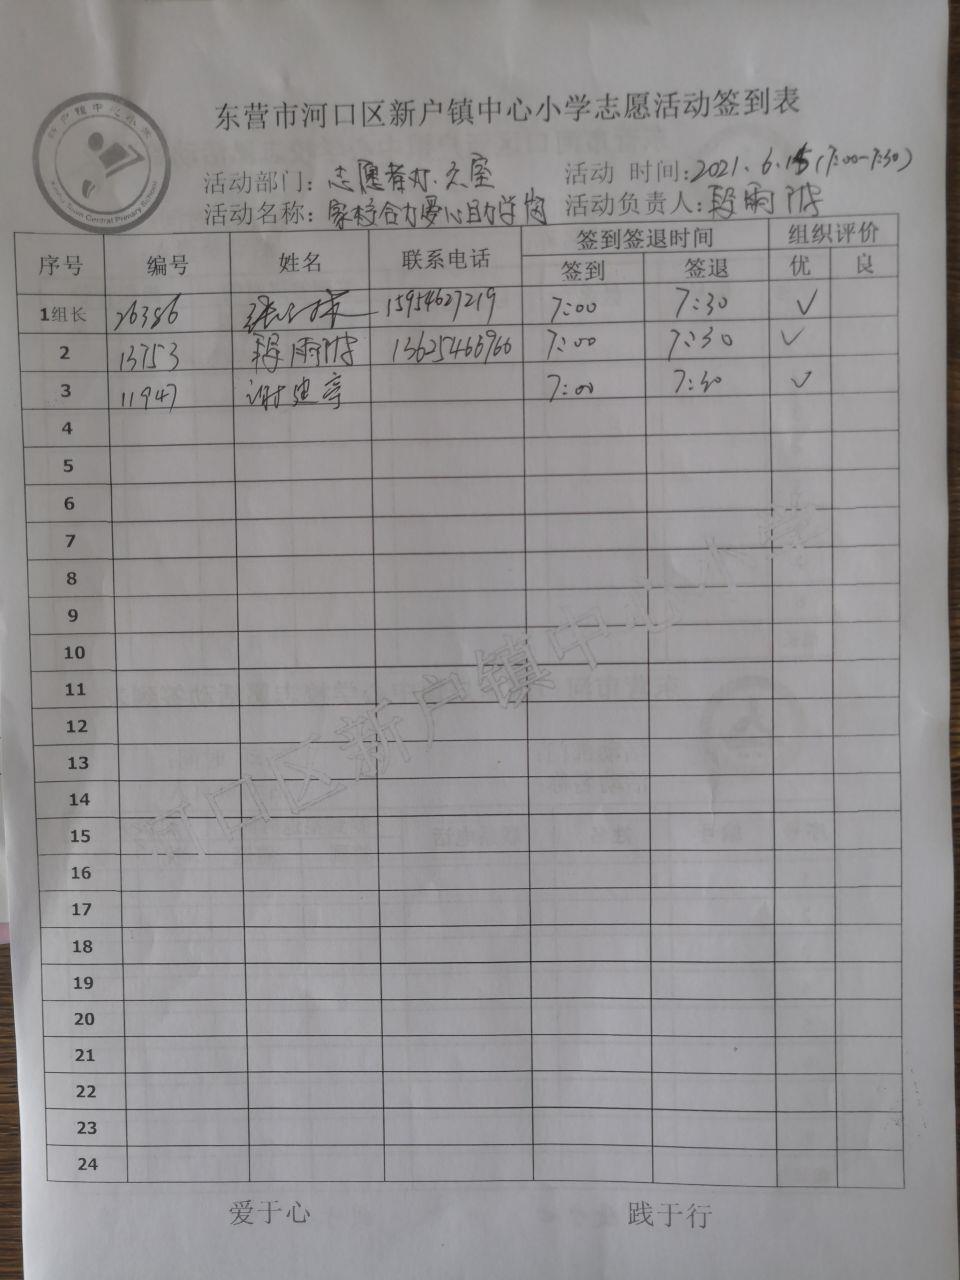 东营市河口区新户镇中心小学志愿活动签到表
活动部门：志愿者办公室 活动 时间：2021.6.15(7:00-7:30)
活动名称：家校合力爱心助学岗 活动负责人：段雨
序号 编号 姓名 联系电话 签到签退时间 组织评价
签到 签退 优 良
1组长 26386 张 15954627219 7:00 7:30 √
2 13753 段雨 13625466966 7:00 7:30 √
3 11947 谢建亭 7:00 7:30 √
4
5
6
7
8
9
10
11
12
13
14
15
16
17
18
19
20
21
22
23
24
河口区新户镇中心小学
爱于心 践于行